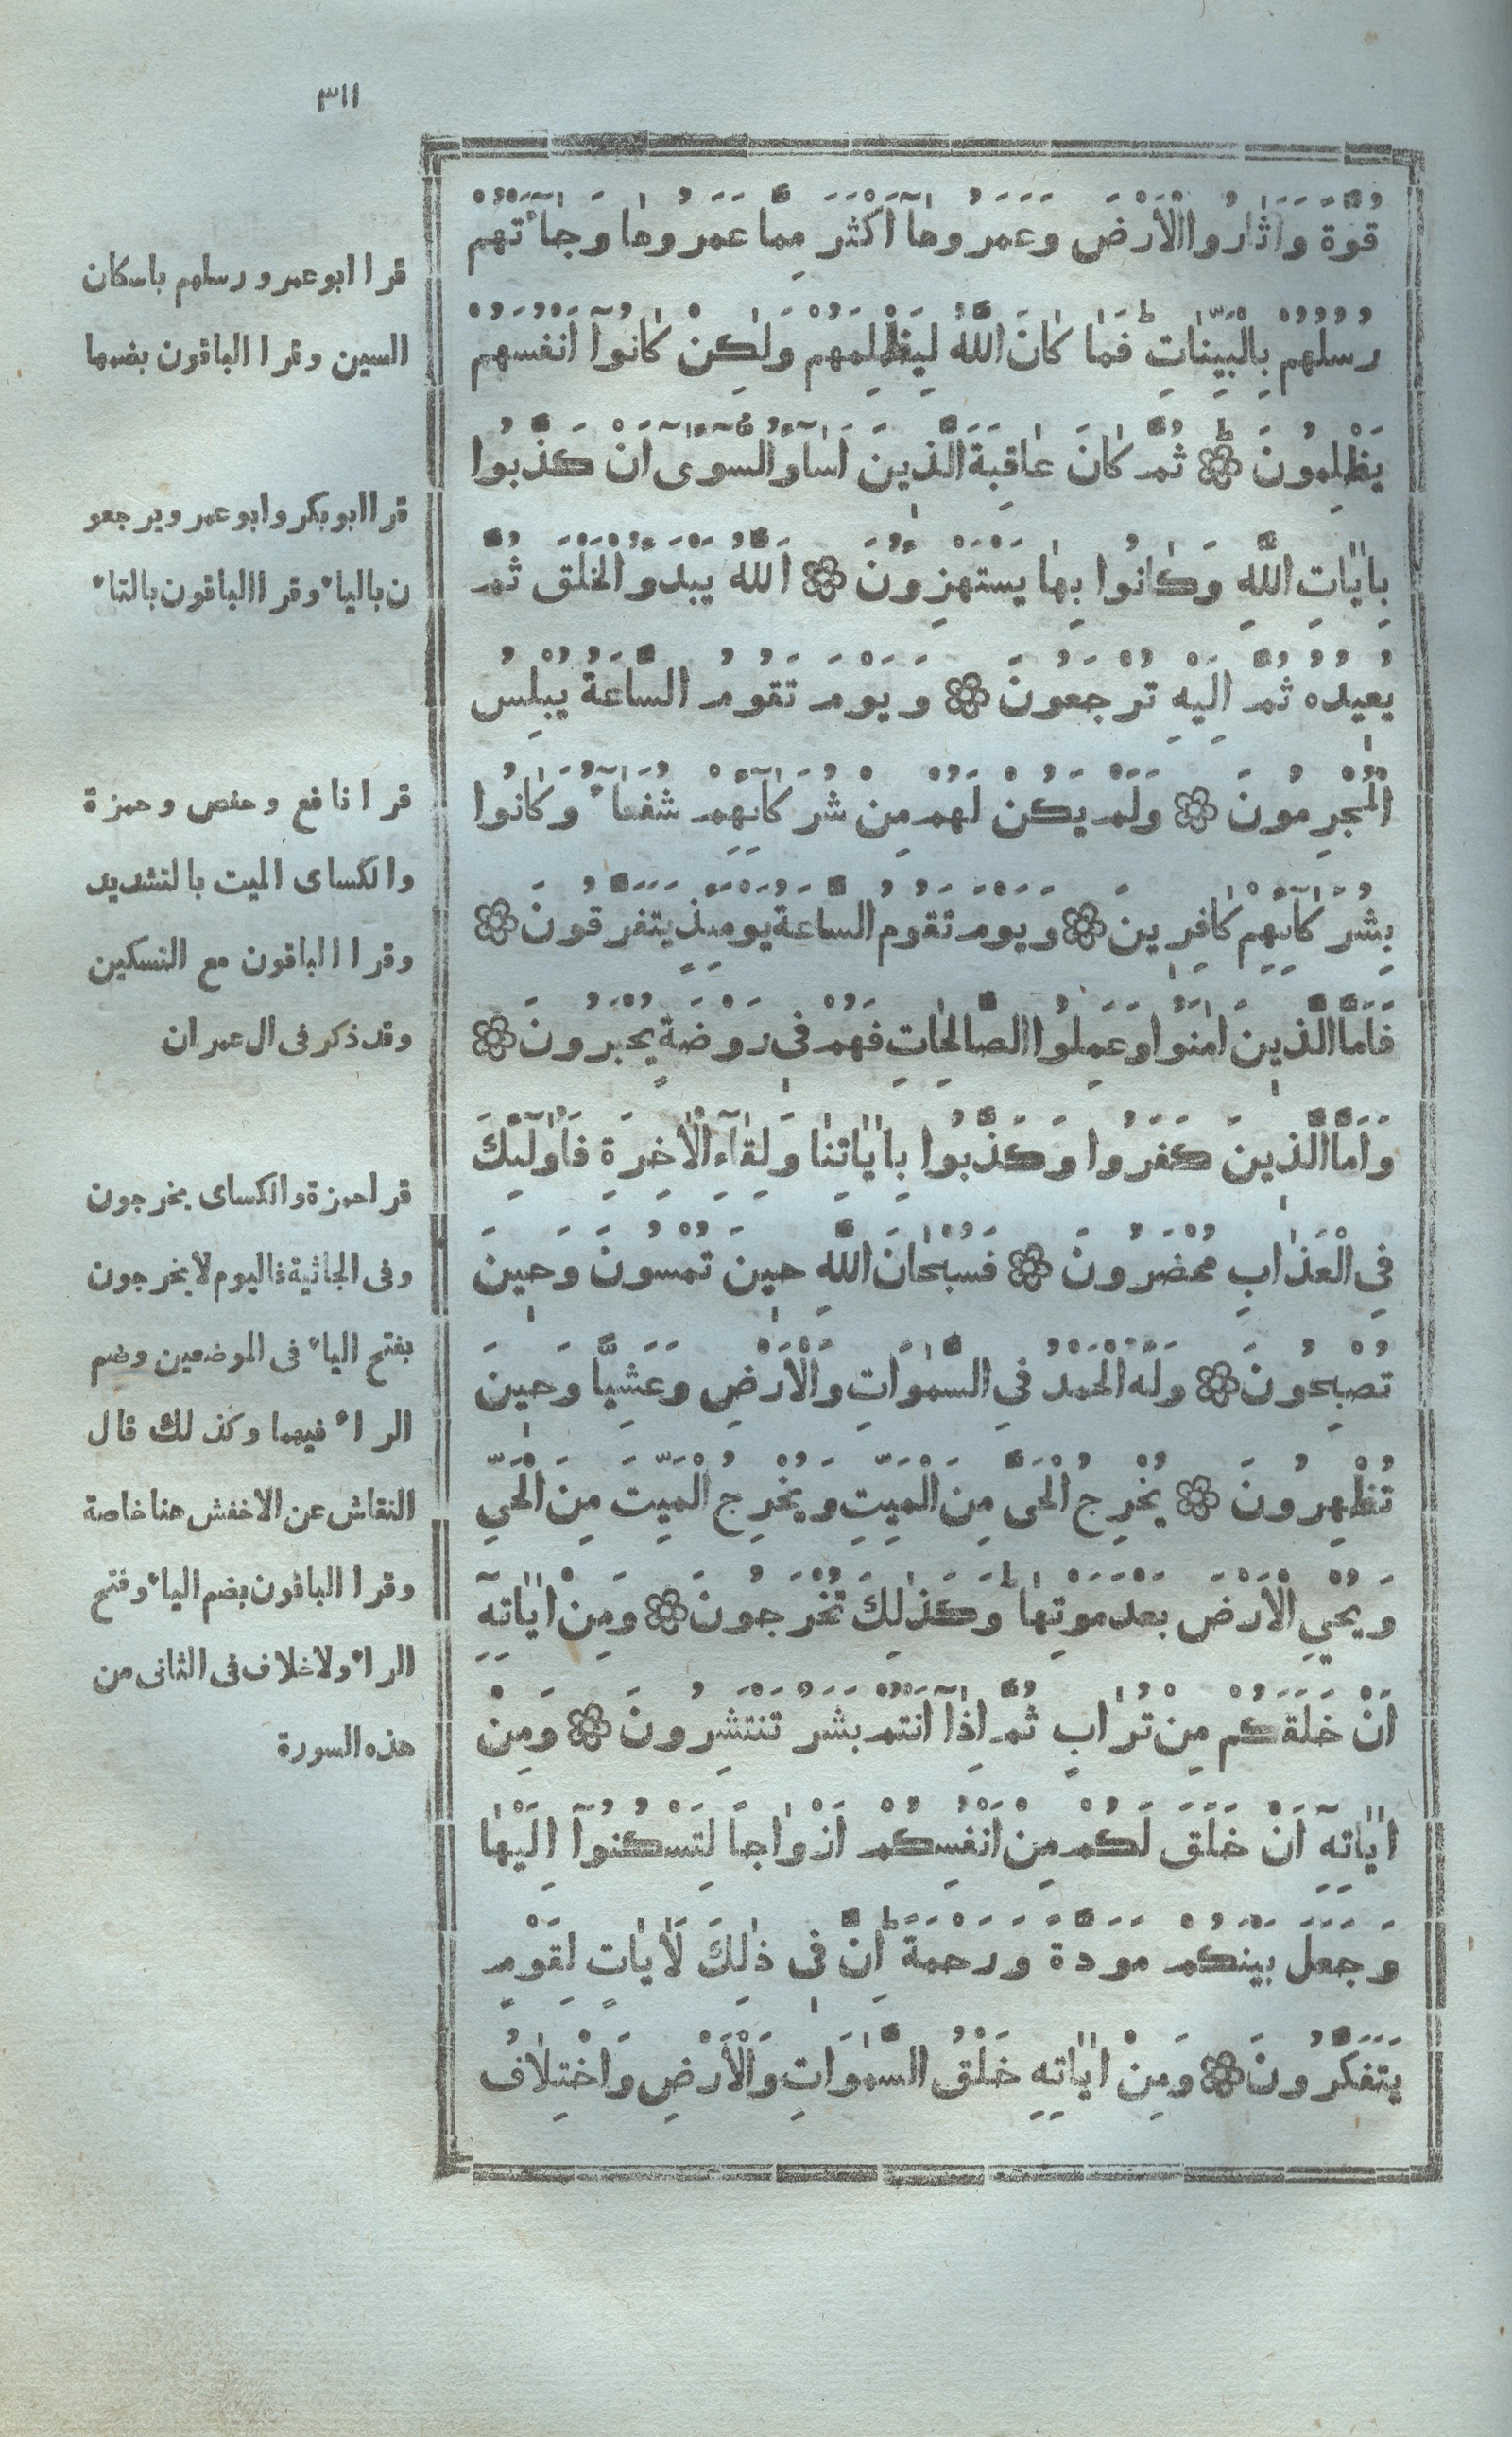 ٣١١
قُوَّةً وَاَثَارُوا الْاَرْضَ وَعَمَرُوهَآ اَكْثَرَ مِمَّا عَمَرُوهَا وَجَآءَتْهُمْ
رُسُلُهُمْ بِالْبَيِّنَاتِ ط فَمَا كَانَ اللّٰهُ لِيَظْلِمَهُمْ وَلٰكِنْ كَانُوآ اَنْفُسَهُمْ
يَظْلِمُونَ ط ثُمَّ كَانَ عَاقِبَةَ الَّذِينَ اَسَآؤُا السُّوٓاٰى اَنْ كَذَّبُوا
بِاٰيَاتِ اللّٰهِ وَكَانُوا بِهَا يَسْتَهْزِؤُنَ ۝ اَللّٰهُ يَبْدَؤُا الْخَلْقَ ثُمَّ
يُعِيدُهُ ثُمَّ اِلَيْهِ تُرْجَعُونَ ۝ وَيَوْمَ تَقُومُ السَّاعَةُ يُبْلِسُ
الْمُجْرِمُونَ ۝ وَلَمْ يَكُنْ لَهُمْ مِنْ شُرَكَآئِهِمْ شُفَعَآءُ وَكَانُوا
بِشُرَكَآئِهِمْ كَافِرِينَ ۝ وَيَوْمَ تَقُومُ السَّاعَةُ يَوْمَئِذٍ يَتَفَرَّقُونَ ۝
فَاَمَّا الَّذِينَ اٰمَنُوا وَعَمِلُوا الصَّالِحَاتِ فَهُمْ فِى رَوْضَةٍ يُحْبَرُونَ ۝
وَاَمَّا الَّذِينَ كَفَرُوا وَكَذَّبُوا بِاٰيَاتِنَا وَلِقَآءِ الْاٰخِرَةِ فَاُولٰٓئِكَ
فِى الْعَذَابِ مُحْضَرُونَ ۝ فَسُبْحَانَ اللّٰهِ حِينَ تُمْسُونَ وَحِينَ
تُصْبِحُونَ ۝ وَلَهُ الْحَمْدُ فِى السَّمٰوَاتِ وَالْاَرْضِ وَعَشِيًّا وَحِينَ
تُظْهِرُونَ ۝ يُخْرِجُ الْحَىَّ مِنَ الْمَيِّتِ وَيُخْرِجُ الْمَيِّتَ مِنَ الْحَىِّ
وَيُحْيِ الْاَرْضَ بَعْدَ مَوْتِهَا ط وَكَذٰلِكَ تُخْرَجُونَ ۝ وَمِنْ اٰيَاتِهِٓ
اَنْ خَلَقَكُمْ مِنْ تُرَابٍ ثُمَّ اِذَآ اَنْتُمْ بَشَرٌ تَنْتَشِرُونَ ۝ وَمِنْ
اٰيَاتِهِٓ اَنْ خَلَقَ لَكُمْ مِنْ اَنْفُسِكُمْ اَزْوَاجاً لِتَسْكُنُوآ اِلَيْهَا
وَجَعَلَ بَيْنَكُمْ مَوَدَّةً وَرَحْمَةً ط اِنَّ فِى ذٰلِكَ لَاٰيَاتٍ لِقَوْمٍ
يَتَفَكَّرُونَ ۝ وَمِنْ اٰيَاتِهِ خَلْقُ السَّمٰوَاتِ وَالْاَرْضِ وَاخْتِلَافُ
قرا ابو عمرو رسلهم باسكان
السين وقرا الباقون بضمها
قرا ابو بكر وابو عمرو يرجعو
ن بالياء وقرا الباقون بالتاء
قرا نافع وحفص وحمزة
والكساى الميت بالتشديد
وقرا الباقون مع التسكين
وقد ذكر فى ال عمران
قرا حمزة والكساى يخرجون
وفى الجاثية فاليوم لا يخرجون
بفتح الياء فى الموضعين وضم
الراء فيهما وكذلك قال
النقاش عن الاخفش هنا خاصة
وقرا الباقون بضم الياء وفتح
الراء ولا خلاف فى الثانى من
هذه السورة